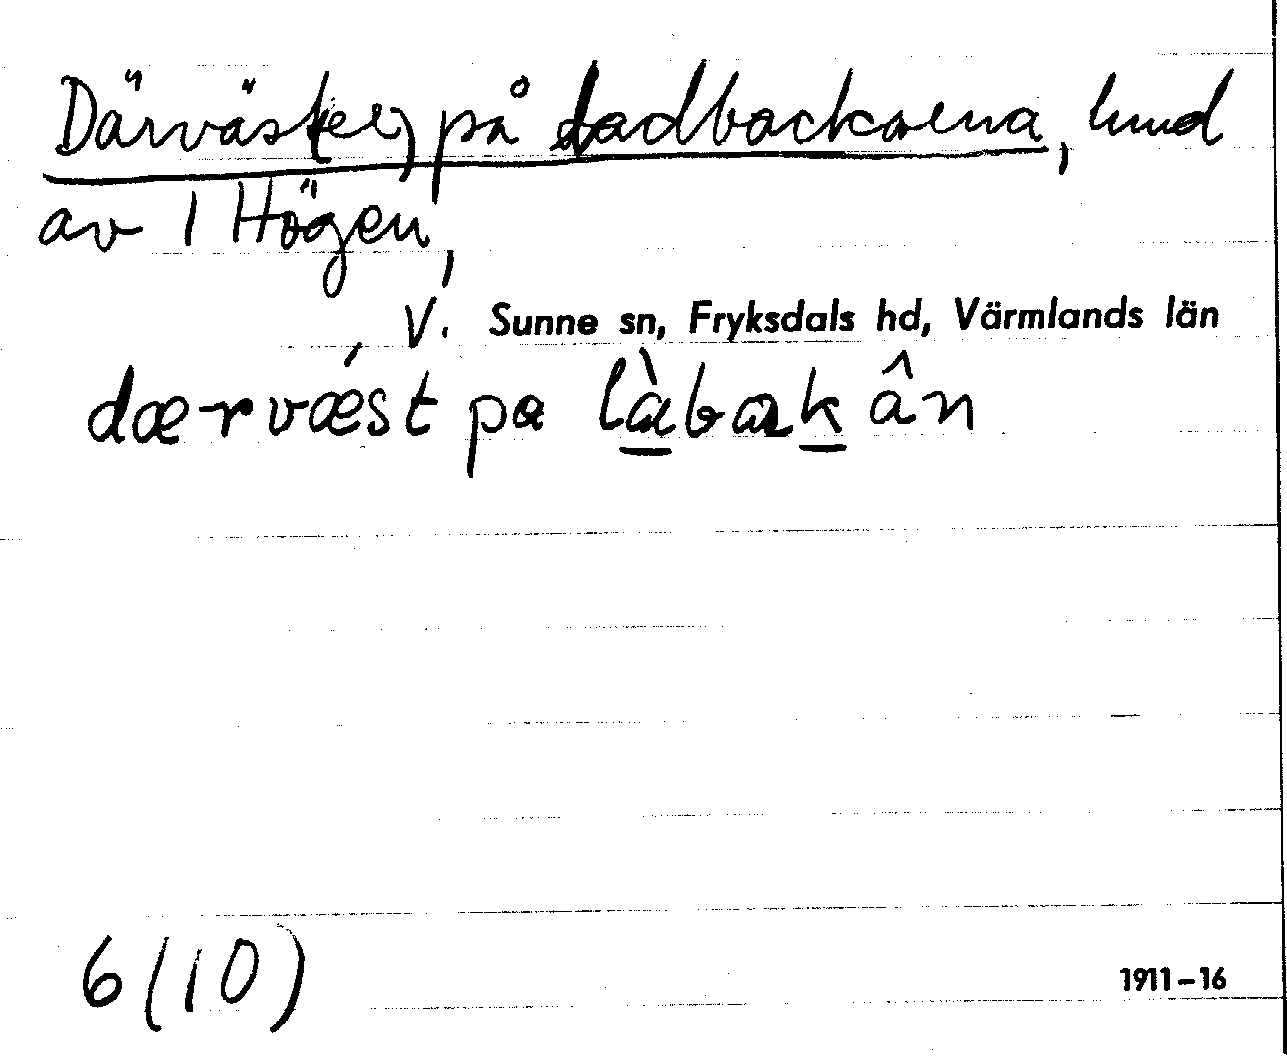 Därväst(er) på Ladbackarna, hmd
av 1 Högen,
V. Sunne sn, Fryksdals hd, Värmlands län
dærvǽst pa làbakân
6(10)
1911-16